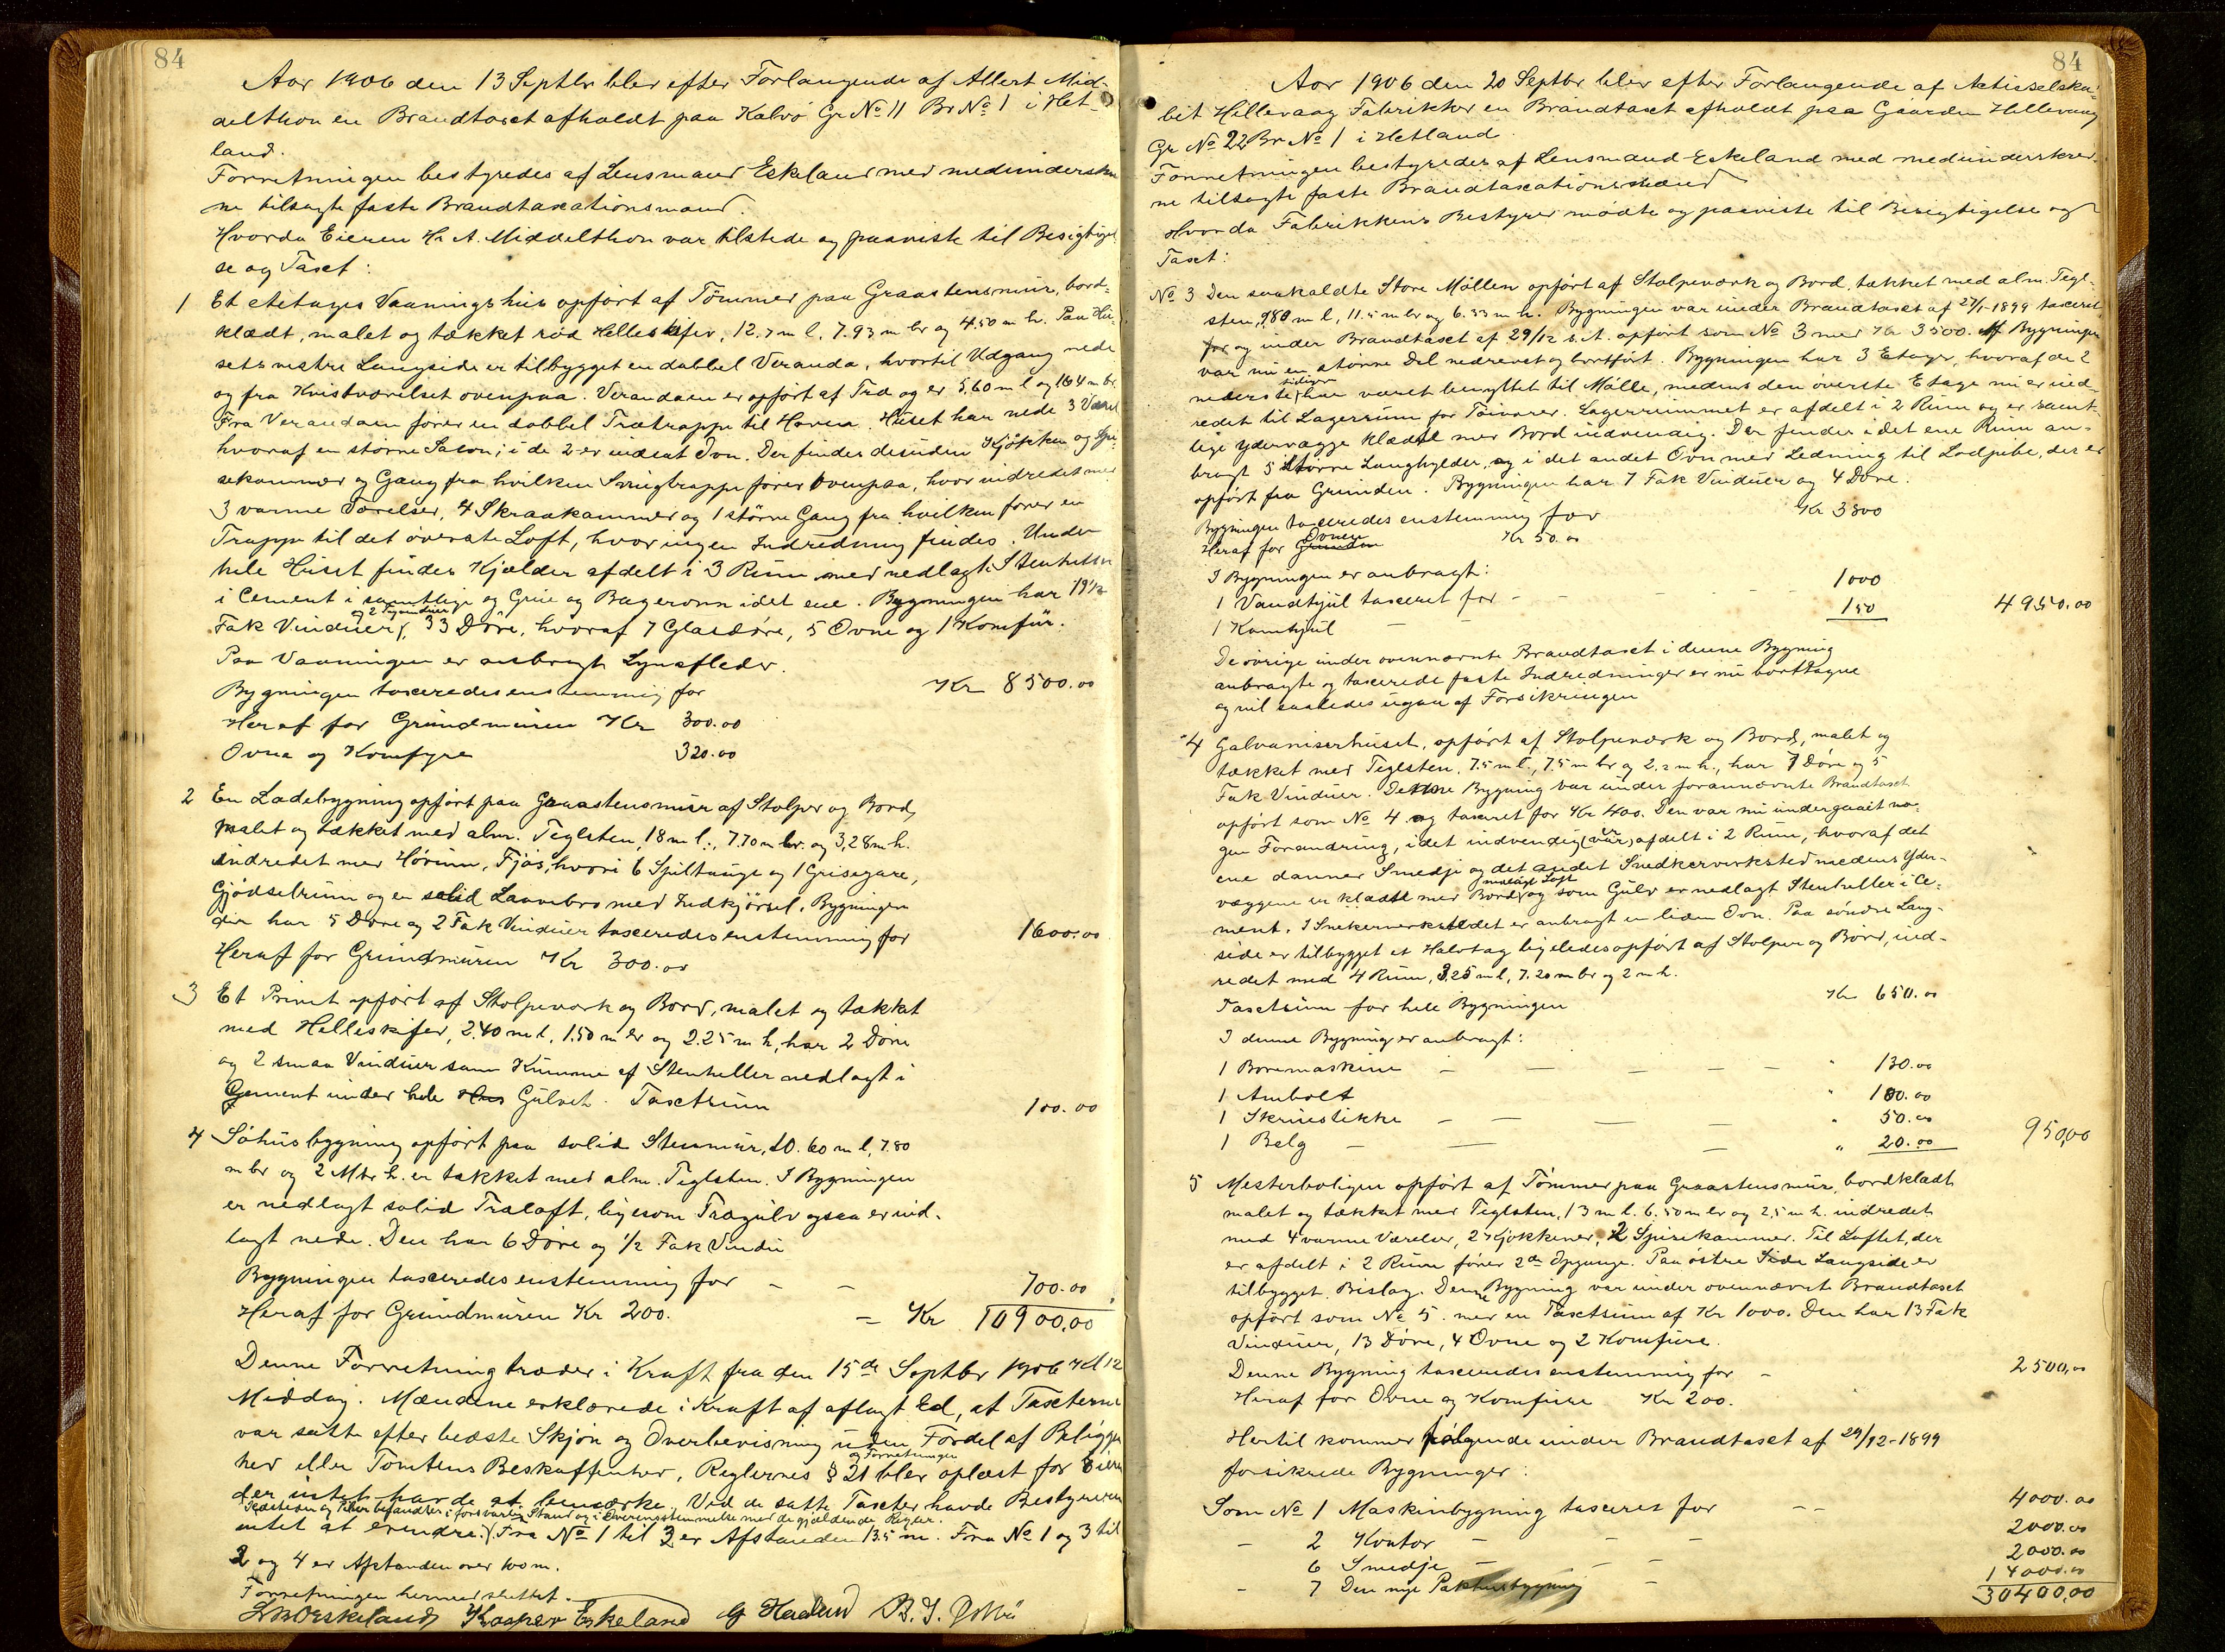 84
Aar 1906 den 13 Septbr blev efter Forlangende af Allert Mid-
delthon en Brandtaxt afholdt paa Kalvø Gr No 11 Br No 1 i Het-
land.
Forretningen bestyredes af Lensmand Eskeland med medunderskrev
ne tilsagte faste Brandtaxationsmænd.
Hvorda Eieren Hr A. Middelthon var tilstede og paaviste til Besigtigel
se og Taxt:
1 Et etetages Vaaningshus opført af Tømmer paa Graastensmur, bord-
klædt, malet og tækket rød Helleskifer, 12.7 m l. 7.93 m br og 4.50 m h. Paa Hu-
sets vestre Langside er tilbygget en dobbel Veranda, hvortil Udgang nede
og fra Kvistværelset ovenpaa. Verandaen er opført af Træ og er 5.60 m l og 1.64 m br.
Fra Verandaen fører en dobbel Trætrappe til Haven. Huset har nede 3 Værel
hvoraf en større Salon; i de 2 er indsat Ovn. Der findes desuden Kjøkken og Spi-
sekammer og Gang fra hvilken Svingtrappe fører ovenpaa, hvor indredet med
3 varme Værelser, 4 Skraakammer og 1 større Gang fra hvilken fører en
Trappe til det øverste Loft, hvor ingen Indredning findes. Under
hele Huset findes Kjælder afdelt i 3 Rum med nedlagte Stenheller
i Cement i samtlige og Grue og Bagerovn i det ene. Bygningen har 19 1/2
Fak Vinduer, 33 Døre, hvoraf 7 Glasdøre, 5 Ovne og 1 Komfur.
Paa Vaaningen er anbragt Lynafleder.
Bygningen taxeredes enstemmig for Kr 8500.00
Heraf for Grundmuren Kr 300.00
Ovne og Komfyre 320.00
2 En Ladebygning opført paa Graastensmur af Stolper og Bord,
malet og tækket med alm. Teglsten, 18 m l., 7.70 m br. og 3,28 m h.
indredet med Hørum, Fjøs, hvori 6 Spiltauge og 1 Grisegare,
Gjødselrum og en solid Laavebro med Indkjørsel. Bygningen
der har 5 Døre og 2 Fak Vinduer taxeredes enstemmig for 1600.00
Heraf for Grundmuren Kr 300.00
3 Et Privet opført af Stolpeværk og Bord, malet og tækket
med Helleskifer, 2.40 m l, 1.50 m br og 2.25 m h, har 2 Døre
og 2 smaa Vinduer samt Kumme af Stenheller nedlagt i
Cement under hele Gulvet. Taxtsum 100.00
4 Søhusbygning opført paa solid Stenmur, 10.60 m l, 7.80
m br og 2 Mtr h. er tækket med alm. Teglsten. I Bygningen
er nedlagt solid Træloft, ligesom Trægulv ogsaa er ind-
lagt nede. Den har 6 Døre og 1/2 Fak Vindu
Bygningen taxeredes enstemmig for - - 700.00
Heraf for Grundmuren Kr 200. = Kr 10900,00
Denne Forretning træder i Kraft fra den 15de Septbr 1906 Kl 12
Middag. Mændene erklærede i Kraft af aflagt Ed, at Taxterne
var satte efter bedste Skjøn og Overbevisning uden Fordel af Beliggen
hed eller Tomtens Beskaffenhed. Reglernes § 21 og Forretningen blev oplæst for Eieren
der intet havde at bemærke. Ved de satte Taxter havde Bestyreren
Ildsteder og Piber befandtes i forsvarlig Stand og i Overensstemmelse med de gjældende Regler.
intet at erindre. Fra No 1 til 3 er Afstanden 13.5 m. Fra No 1 og 3 til
2 og 4 er Afstanden over 100 m.
Forretningen hermed sluttet.
Kasper Eskeland
84
Aar 1906 den 20 Septbr blev efter Forlangende af Actieselska-
bet Hillevaag Fabrikker en Brandtaxt afholdt paa Gaarden Hillevaag
Gr No 22 Br No 1 i Hetland.
Forretningen bestyredes af Lensmand Eskeland med medunderskrev-
ne tilsagte faste Brandtaxationsmænd
Hvorda Fabrikkens Bestyrer mødte og paaviste til Besigtigelse og
Taxt:
No 3 Den saakaldte Store Møllen opført af Stolpeværk og Bord, tækket med alm. Tegl-
sten, 9.80 m l, 11.5 m br og 6.33 m h. Bygningen var under Brandtaxt af 27/1-1899 taxeret
for og under Brandtaxt af 29/12 s. A. opført som No 3 med Kr 3500. Af Bygningen
var nu en større Del nedrevet og bortført. Bygningen har 3 Etager, hvoraf de 2
nederste tidligere har været benyttet til Mølle, medens den øverste Etage nu er ind-
redet til Lagerrum for Tøivarer. Lagerrummet er afdelt i 2 Rum og er samt-
lige Ydervægge klædte med Bord indvendig. Der findes i det ene Rum an-
bragt 5 større Langhylder, og i det andet Ovn med Ledning til Lodpibe, der er
opført fra Grunden. Bygningen har 7 Fak Vinduer og 4 Døre.
Bygningen taxeredes enstemmig for Kr 3800
Heraf for Ovnen Kr 50.00
I Bygningen er anbragt:
1 Vandhjul taxeret for - - - - 1000
1 Kamhjul - - 150 4950.00
De øvrige under ovennævnte Brandtaxt i denne Bygning
anbragte og taxerede faste Indredninger er nu borttagne
og vil saaledes udgaa af Forsikringen
4 Galvaniserhuset, opført af Stolpeværk og Bord, malet og
tækket med Teglsten, 7.5 m l., 7.5 m br og 2.2 m h., har 7 Døre og 5
Fak Vinduer. Denne Bygning var under forannævnte Brandtaxt
opført som No 4 og taxeret for Kr 400. Den var nu undergaaet no-
gen Forandring, idet indvendig (var) afdelt i 2 Rum, hvoraf det
ene danner Smedje og det andet Snedkerverksted medens Yder-
væggene er klædte med Bord, og som Gulv er nedlagt Stenheller i Ce-
ment. I Snekerverkstedet er anbragt en liden Ovn. Paa søndre Lang-
side er tilbygget et Halvtag ligeledes opført af Stolper og Bord, ind-
redet med 4 Rum, 3,25 m l, 7.20 m br og 2 m h.
Taxtsum for hele Bygningen Kr 650.00
I denne Bygning er anbragt:
1 Boremaskine - - - - - " 130.00
1 Ambolt " 100.00
1 Skruestikke - - - - " 50.00
1 Belg - - - " 20.00 950,00
5 Mesterboligen opført af Tømmer paa Graastensmur, bordklædt,
malet og tækket med Teglsten, 13 m l. 6.50 m br og 2,5 m h. indredet
med 4 varme Værelser, 2 Kjøkkener, 2 Spisekammer. Til Loftet, der
er afdelt i 2 Rum fører 2de Opgange. Paa østre Side Langside er
tilbygget Bislag. Denne Bygning var under ovennævnt Brandtaxt
opført som No 5 med en Taxtsum af Kr 1000. Den har 13 Fak
Vinduer, 13 Døre, 4 Ovne og 2 Komfure.
Denne Bygning taxeredes enstemmig for - 2500,00
Heraf for Ovne og Komfure Kr 200.
Hertil kommer følgende under Brandtaxt af 29/12-1899
forsikrede Bygninger:
Som No 1 Maskinbygning taxeret for - - 4000.00
- 2 Kontor - - - - 2000.00
6 Smedje - - - 2000.00
- 7 Den nye Pakhusbygning - 14000.00
30400,00